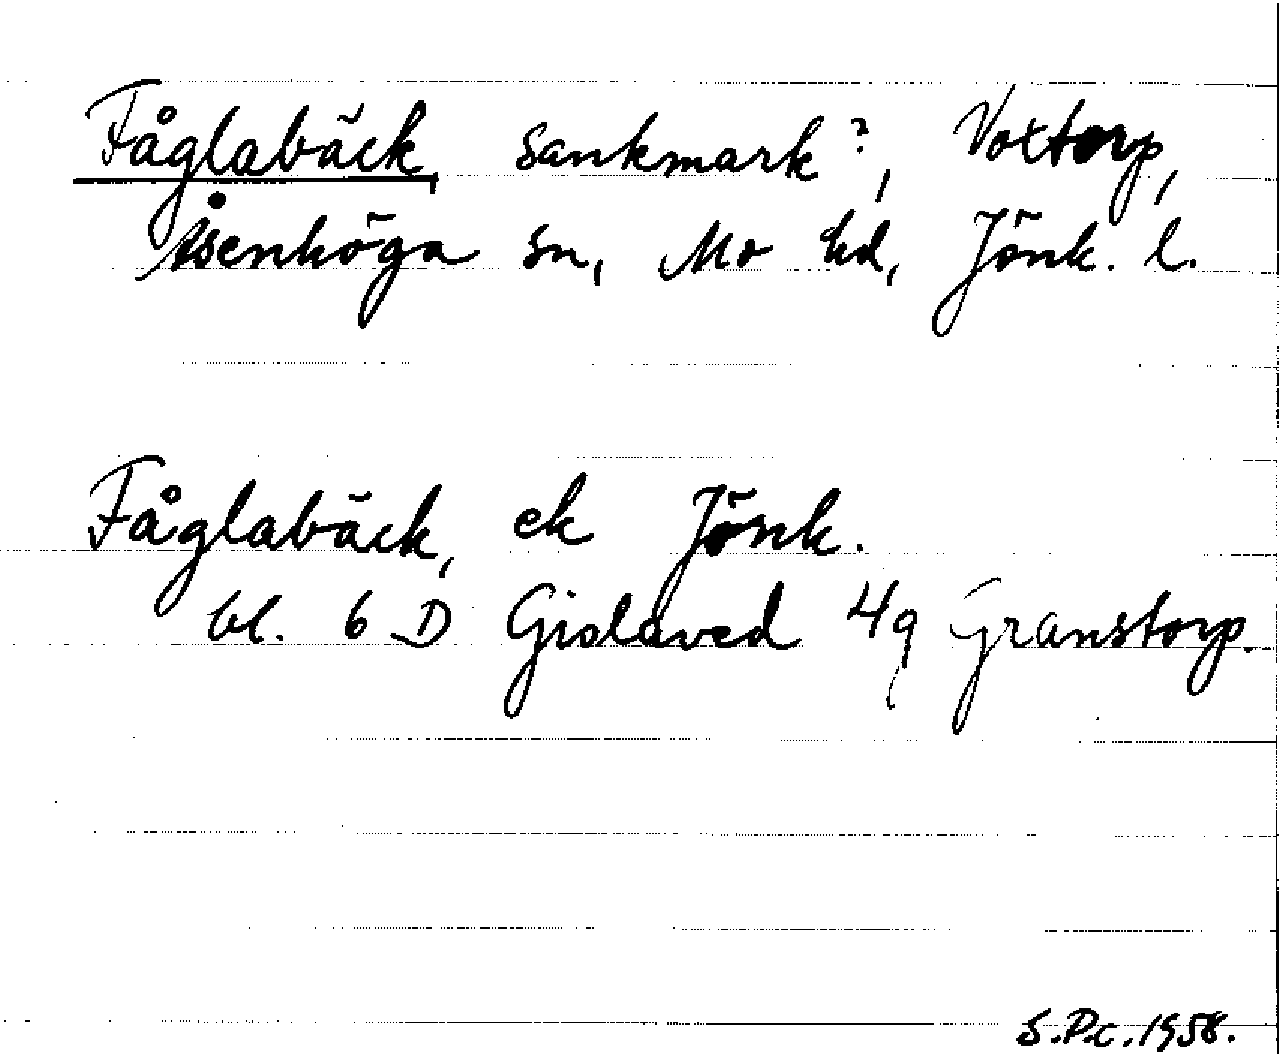 Fåglabäck, sankmark?, Voxtorp,
Åsenhöga sn, Mo hd, Jönk. l.
Fåglabäck, ek Jönk.
bl. 6 D Gislaved 4q Granstorp.
S.Pc. 1958.